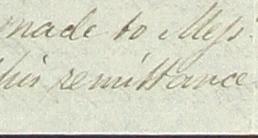 made to Mess.
this remittance